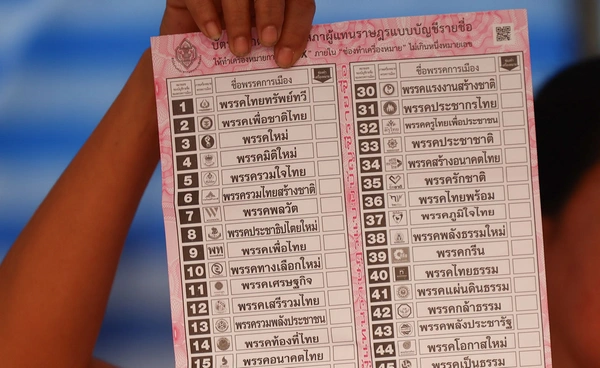 บัตร สภาผู้แทนราษฎรแบบบัญชีรายชื่อ
ให้ทำเครื่องหมายกากบาท X ภายใน "ช่องทำเครื่องหมาย" ไม่เกินหนึ่งหมายเลข
ชื่อพรรคการเมือง
1 พรรคไทยทรัพย์ทวี
2 พรรคเพื่อชาติไทย
3 พรรคใหม่
4 พรรคมิติใหม่
5 พรรครวมใจไทย
6 พรรครวมไทยสร้างชาติ
7 พรรคพลวัต
8 พรรคประชาธิปไตยใหม่
9 พท พรรคเพื่อไทย
10 พรรคทางเลือกใหม่
11 พรรคเศรษฐกิจ
12 พรรคเสรีรวมไทย
13 พรรครวมพลังประชาชน
14 พรรคท้องที่ไทย
15 พรรคอนาคตไทย
ชื่อพรรคการเมือง
30 พรรคแรงงานสร้างชาติ
31 พรรคประชากรไทย
32 พรรคครูไทยเพื่อประชาชน
33 พรรคประชาชาติ
34 พรรคสร้างอนาคตไทย
35 พรรครักชาติ
36 พรรคไทยพร้อม
37 พรรคภูมิใจไทย
38 พรรคพลังธรรมใหม่
39 พรรคกรีน
40 พรรคไทยธรรม
41 พรรคแผ่นดินธรรม
42 พรรคกล้าธรรม
43 พรรคพลังประชารัฐ
44 พรรคโอกาสใหม่
45 พรรคเป็นธรรม